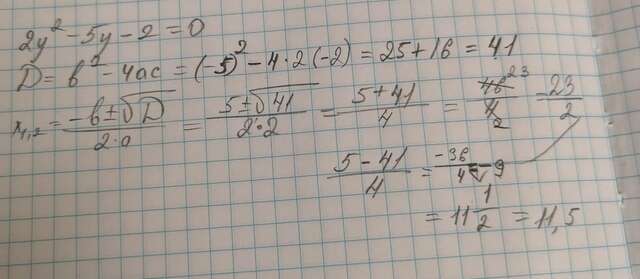 2y² - 5y - 2 = 0
D = b² - 4ac = (-5)² - 4·2(-2) = 25 + 16 = 41
x₁,₂ = (-b ± √D)/(2·a) = (5 ± √41)/(2·2) = (5 + 41)/4 = 46²³/4₂ = 23/2
(5 - 41)/4 = -36/4 = -9
= 11 1/2 = 11,5